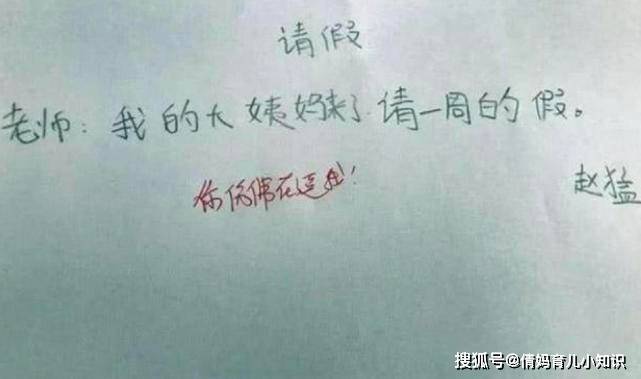 请假
老师：我的大姨妈来了请一周的假。
你仿佛在逗我！
赵猛
搜狐号@倩妈育儿小知识